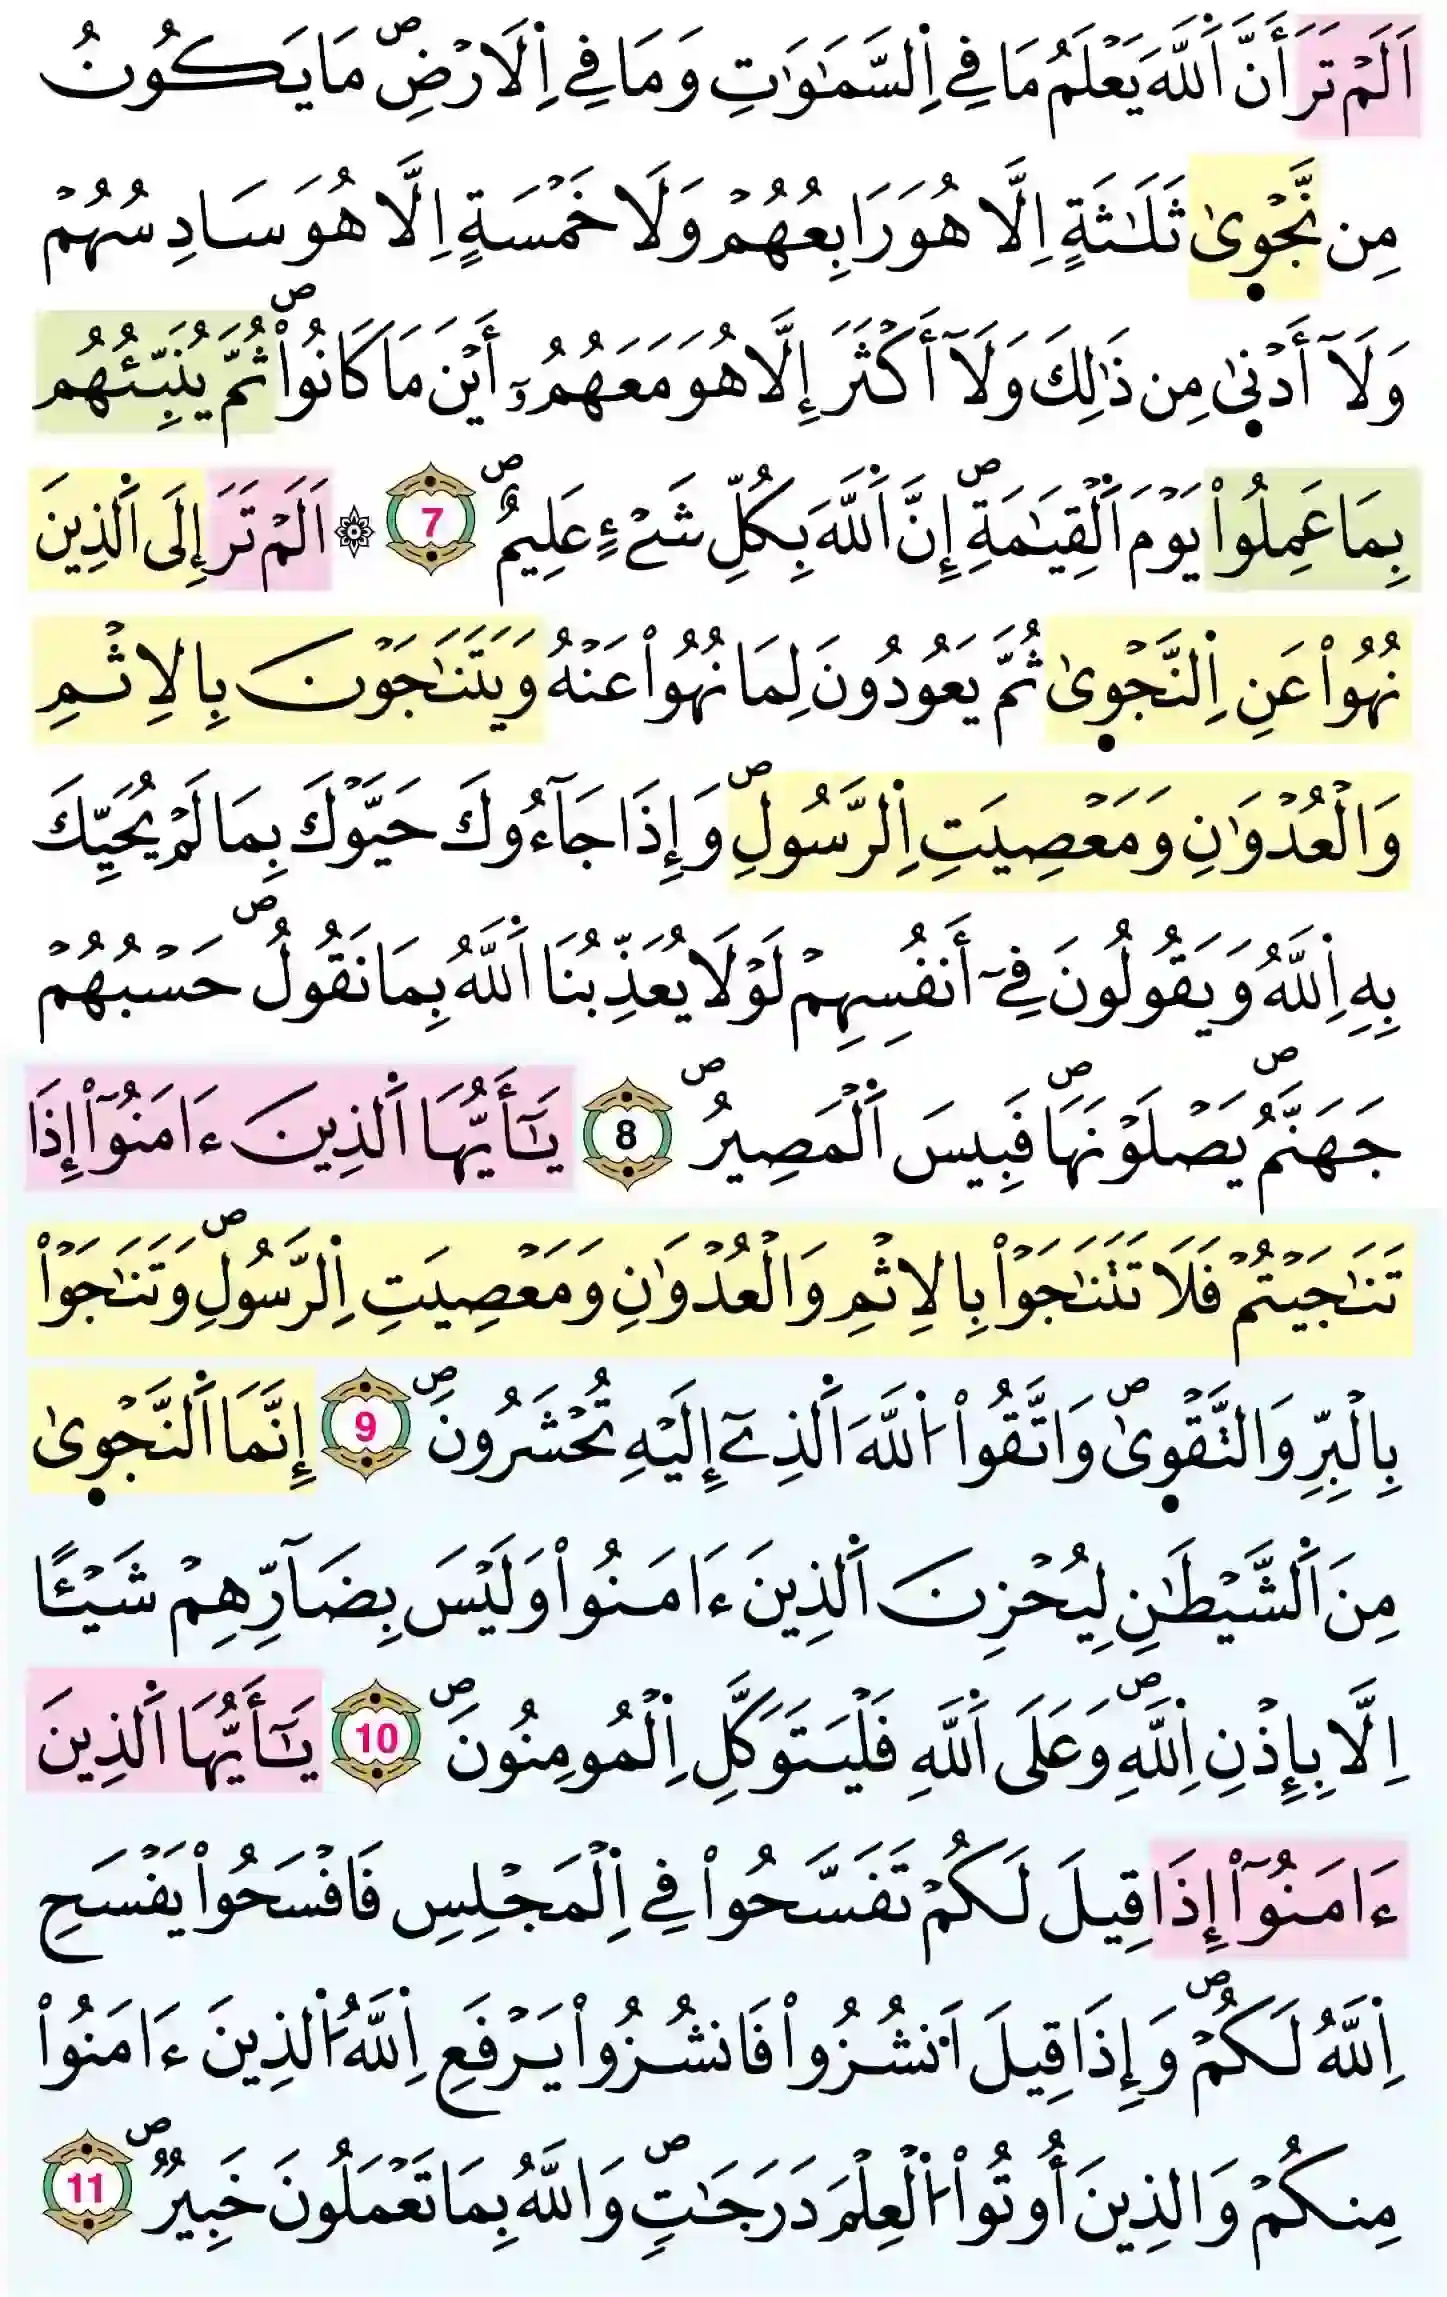 اَلَمْ تَرَ أَنَّ اَ۬للَّهَ يَعْلَمُ مَا فِے اِ۬لسَّمَٰوَٰتِ وَمَا فِے اِ۬لَارْضِۖ مَا يَكُونُ
مِن نَّجْو۪ىٰ ثَلَٰثَةٍ اِلَّا هُوَ رَابِعُهُمْ وَلَا خَمْسَةٍ اِلَّا هُوَ سَادِسُهُمْ
وَلَآ أَدْن۪ىٰ مِن ذَٰلِكَ وَلَآ أَكْثَرَ إِلَّا هُوَ مَعَهُمُۥٓ أَيْنَ مَا كَانُواْۖ ثُمَّ يُنَبِّئُهُم
بِمَا عَمِلُواْ يَوْمَ اَ۬لْقِيَٰمَةِۖ إِنَّ اَ۬للَّهَ بِكُلِّ شَےْءٍ عَلِيمٌۖ 7 ۞ اَلَمْ تَرَ إِلَى اَ۬لذِينَ
نُهُواْ عَنِ اِ۬لنَّجْو۪ىٰ ثُمَّ يَعُودُونَ لِمَا نُهُواْ عَنْهُ وَيَتَنَٰجَوْنَ بِالِاثْمِ
وَالْعُدْوَٰنِ وَمَعْصِيَتِ اِ۬لرَّسُولِۖ وَإِذَا جَآءُوكَ حَيَّوْكَ بِمَا لَمْ يُحَيِّكَ
بِهِ اِ۬للَّهُ وَيَقُولُونَ فِےٓ أَنفُسِهِمْ لَوْلَا يُعَذِّبُنَا اَ۬للَّهُ بِمَا نَقُولُۖ حَسْبُهُمْ
جَهَنَّمُۖ يَصْلَوْنَهَاۖ فَبِيسَ اَ۬لْمَصِيرُۖ 8 يَٰٓأَيُّهَا اَ۬لذِينَ ءَامَنُوٓاْ إِذَا
تَنَٰجَيْتُمْ فَلَا تَتَنَٰجَوْاْ بِالِاثْمِ وَالْعُدْوَٰنِ وَمَعْصِيَتِ اِ۬لرَّسُولِۖ وَتَنَٰجَوْاْ
بِالْبِرِّ وَالتَّقْو۪ىٰۖ وَاتَّقُواْ اُ۬للَّهَ اَ۬لذِےٓ إِلَيْهِ تُحْشَرُونَۖ 9 إِنَّمَا اَ۬لنَّجْو۪ىٰ
مِنَ اَ۬لشَّيْطَٰنِ لِيُحْزِنَ اَ۬لذِينَ ءَامَنُواْ وَلَيْسَ بِضَآرِّهِمْ شَيْـًٔا
اِلَّا بِإِذْنِ اِ۬للَّهِۖ وَعَلَى اَ۬للَّهِ فَلْيَتَوَكَّلِ اِ۬لْمُومِنُونَۖ 10 يَٰٓأَيُّهَا اَ۬لذِينَ
ءَامَنُوٓاْ إِذَا قِيلَ لَكُمْ تَفَسَّحُواْ فِے اِ۬لْمَجْلِسِ فَافْسَحُواْ يَفْسَحِ
اِ۬للَّهُ لَكُمْۖ وَإِذَا قِيلَ اَ۟نشُزُواْ فَانشُزُواْ يَرْفَعِ اِ۬للَّهُ اُ۬لذِينَ ءَامَنُواْ
مِنكُمْ وَالذِينَ أُوتُواْ اُ۬لْعِلْمَ دَرَجَٰتٍۖ وَاللَّهُ بِمَا تَعْمَلُونَ خَبِيرٌۖ 11